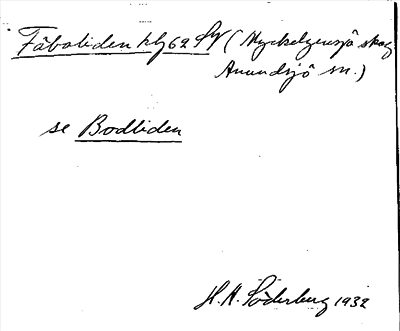 Fäboliden hlg 62 SV (Myckelgensjö skog
Anundsjö sn.)
se Bodliden
H. A. Söderberg 1932